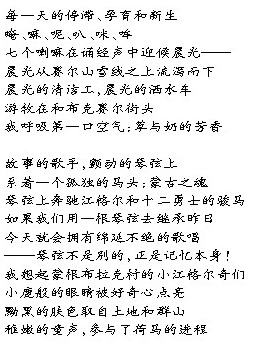 每一天的停滞、孕育和新生
唵、嘛、呢、叭、咪、吽
七个喇嘛在诵经声中迎候晨光——
晨光从赛尔山雪线之上流泻而下
晨光的清洁工，晨光的洒水车
游牧在和布克赛尔街头
我呼吸第一口空气：草与奶的芳香

故事的歌手，颤动的琴弦上
系着一个孤独的马头：蒙古之魂
琴弦上奔驰江格尔和十二勇士的骏马
如果我们用一根琴弦去继承昨日
今天就会拥有绵延不绝的歌唱
——琴弦不是别的，正是记忆本身！
我想起蒙根布拉克村的小江格尔奇们
小鹿般的眼睛被好奇心点亮
黝黑的肤色取自土地和群山
稚嫩的童声，参与了荷马的进程